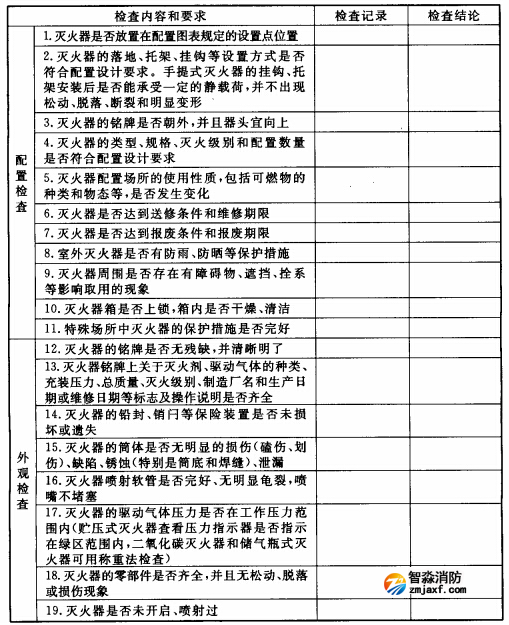 检查内容和要求 检查记录 检查结论
配置检查
1.灭火器是否放置在配置图表规定的设置点位置
2.灭火器的落地、托架、挂钩等设置方式是否
符合配置设计要求。手提式灭火器的挂钩、托
架安装后是否能承受一定的静载荷,并不出现
松动、脱落、断裂和明显变形
3.灭火器的铭牌是否朝外,并且器头宜向上
4.灭火器的类型、规格、灭火级别和配置数量
是否符合配置设计要求
5.灭火器配置场所的使用性质,包括可燃物的
种类和物态等,是否发生变化
6.灭火器是否达到送修条件和维修期限
7.灭火器是否达到报废条件和报废期限
8.室外灭火器是否有防雨、防晒等保护措施
9.灭火器周围是否存在有障碍物、遮挡、拴系
等影响取用的现象
10.灭火器箱是否上锁,箱内是否干燥、清洁
11.特殊场所中灭火器的保护措施是否完好
外观检查
12.灭火器的铭牌是否无残缺,并清晰明了
13.灭火器铭牌上关于灭火剂、驱动气体的种类、
充装压力、总质量、灭火级别、制造厂名和生产日
期或维修日期等标志及操作说明是否齐全
14.灭火器的铅封、销闩等保险装置是否未损
坏或遗失
15.灭火器的筒体是否无明显的损伤(磕伤、划
伤)、缺陷、锈蚀(特别是筒底和焊缝)、泄漏
16.灭火器喷射软管是否完好、无明显龟裂,喷
嘴不堵塞
17.灭火器的驱动气体压力是否在工作压力范
围内(贮压式灭火器查看压力指示器是否指示
在绿区范围内,二氧化碳灭火器和储气瓶式灭
火器可用称重法检查)
18.灭火器的零部件是否齐全,并且无松动、脱落
或损伤现象
19.灭火器是否未开启、喷射过
智淼消防
zmjaxf.com